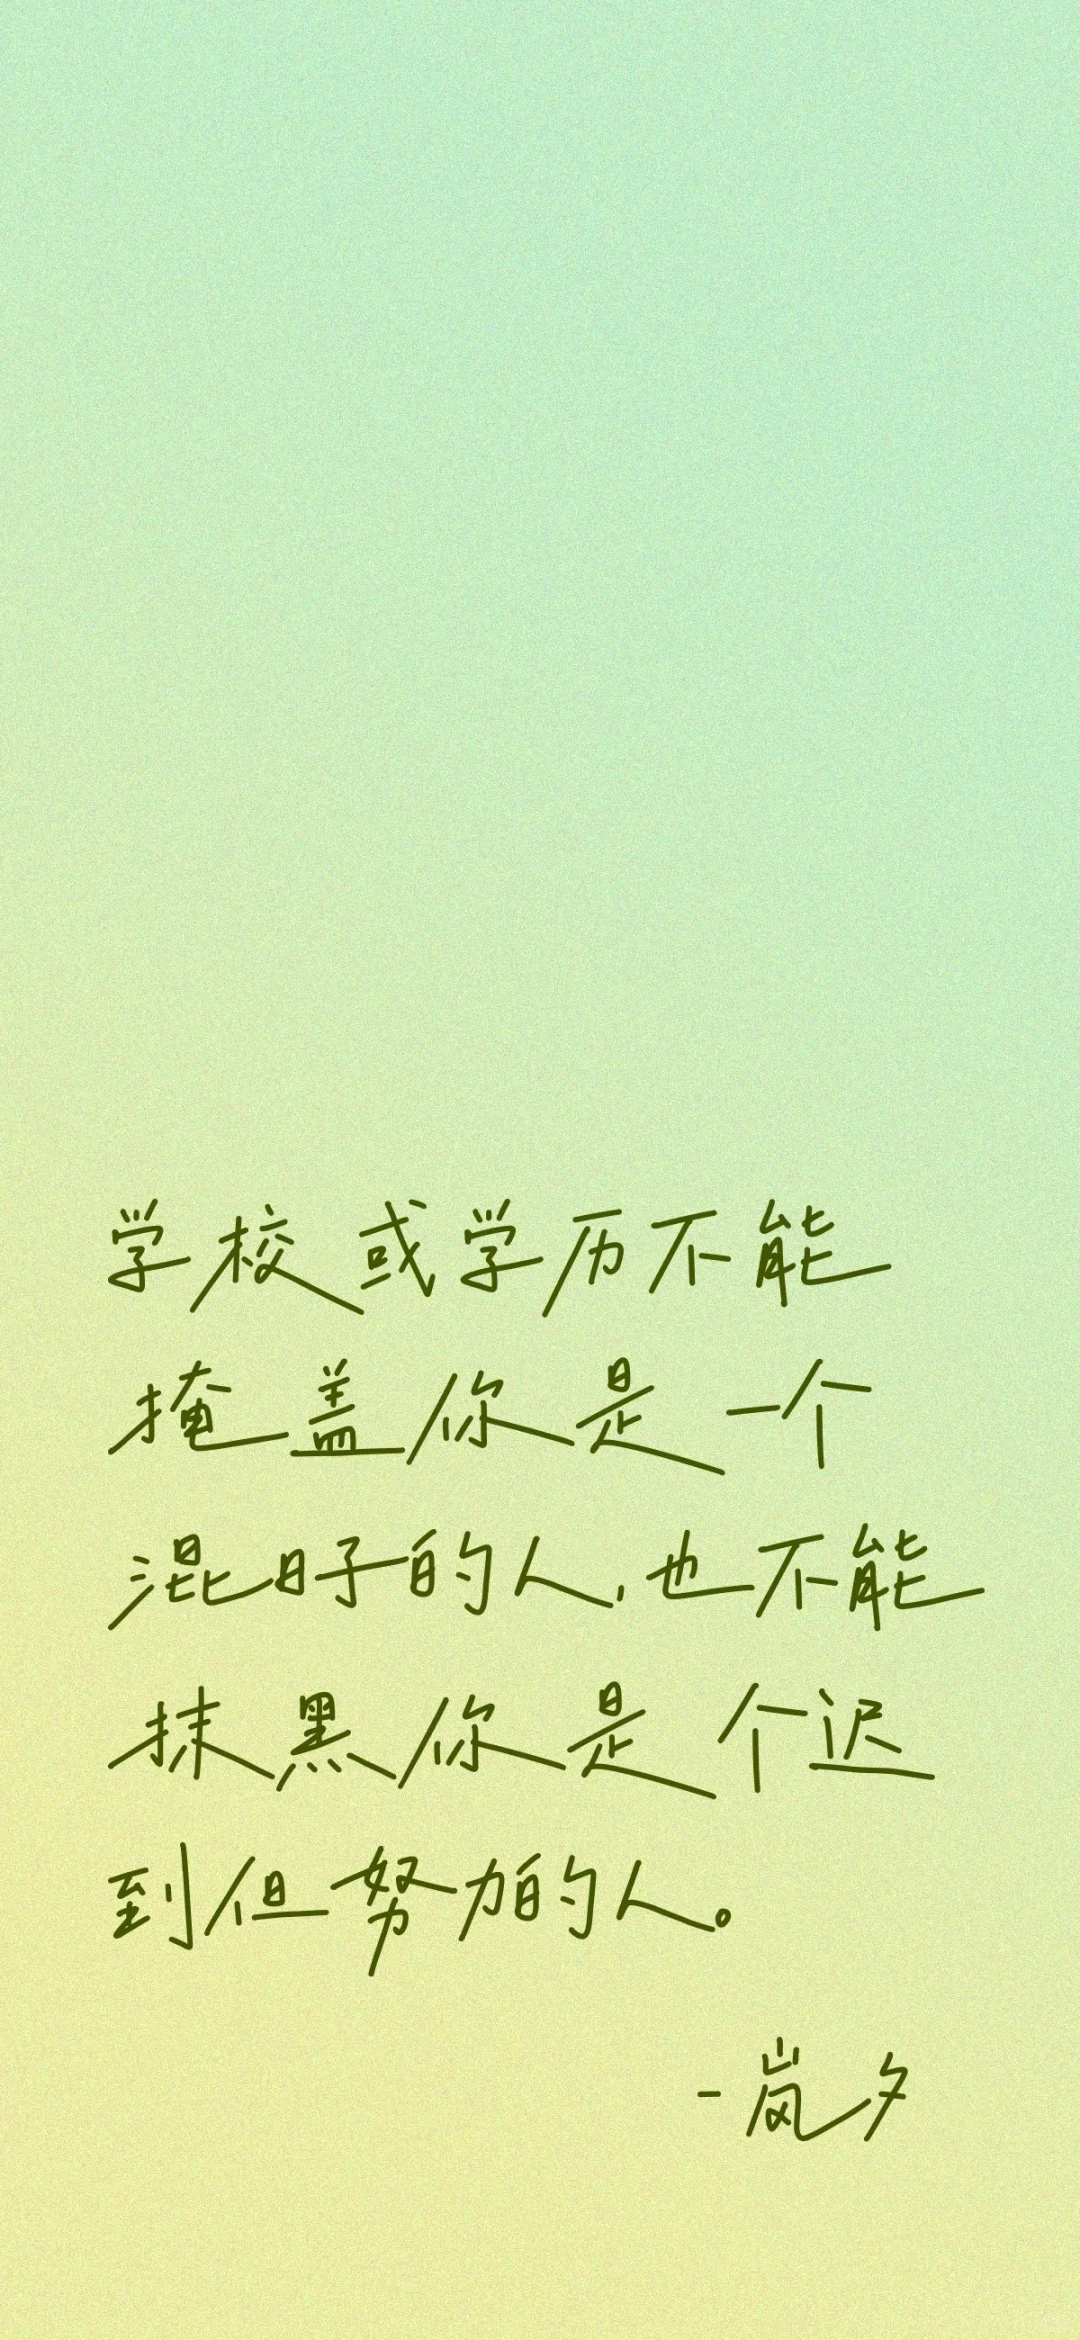 学校或学历不能
掩盖你是一个
混日子的人,也不能
抹黑你是个迟
到但努力的人。
-岚夕